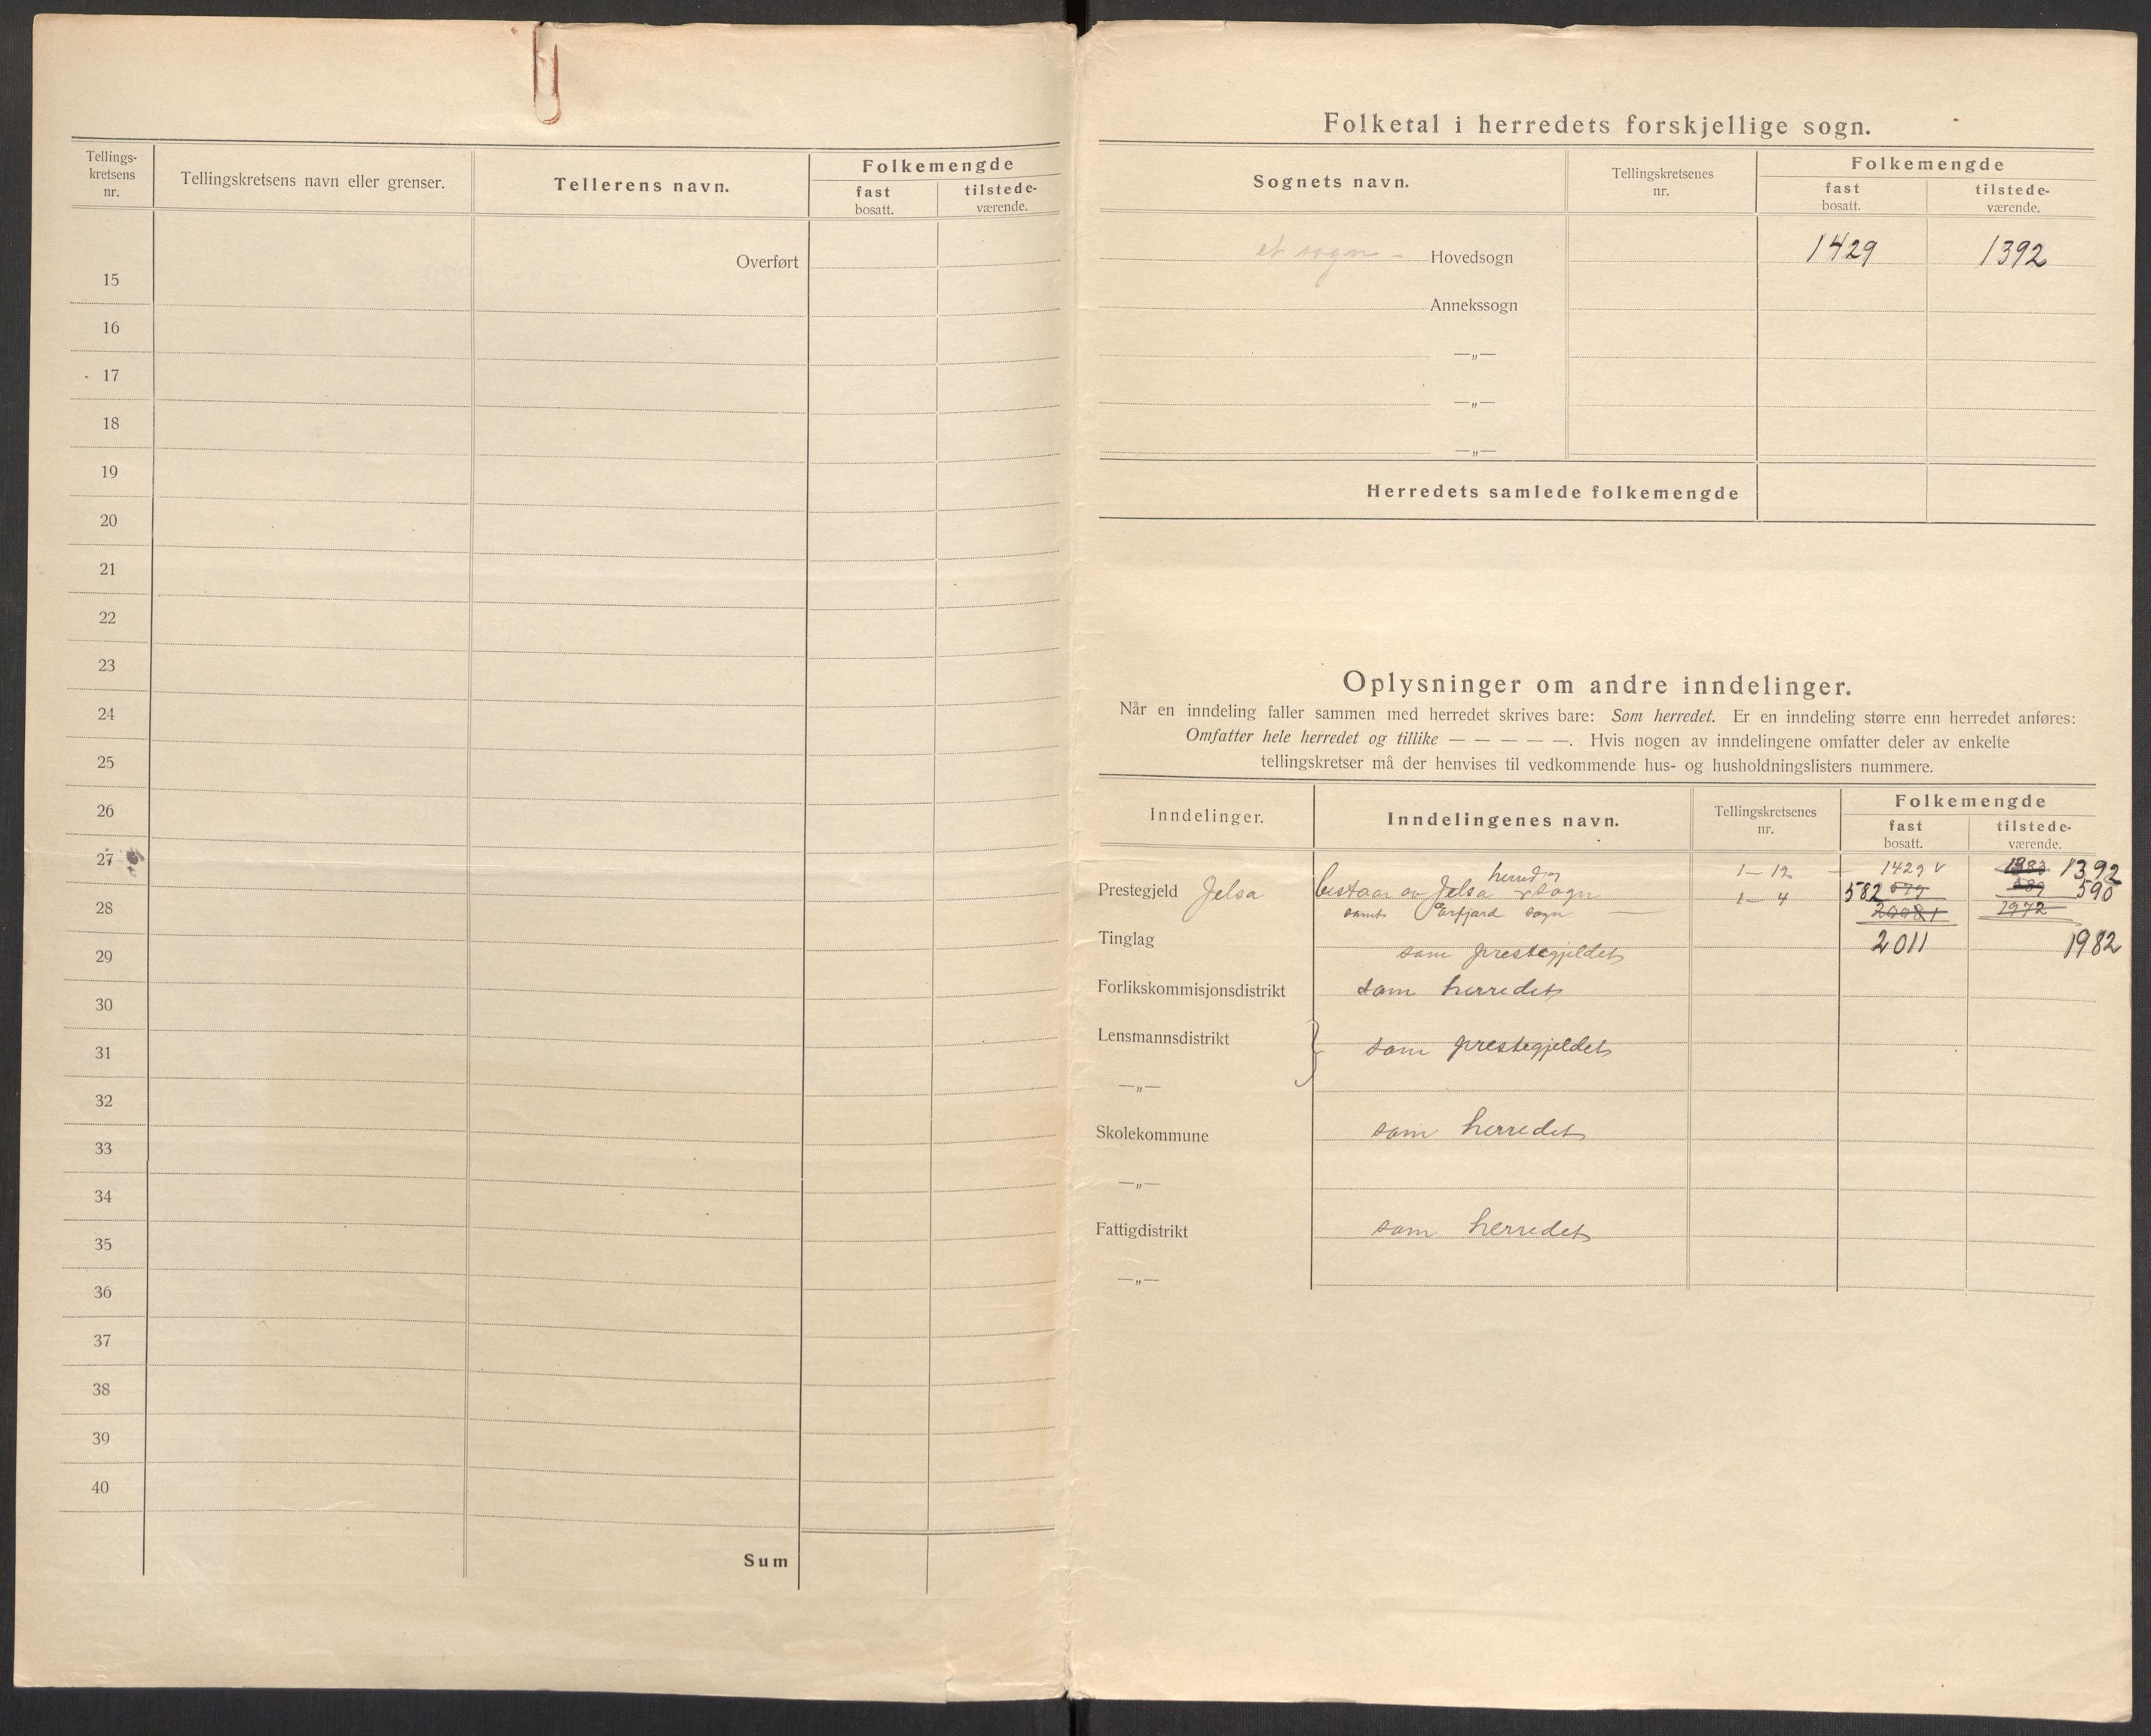 Tellings-
kretsens
nr.
Tellingskretsens navn eller grenser.
Tellerens navn.
Folkemengde
fast
bosatt.
tilstede-
værende.
Overført
15
16
17
18
19
20
21
22
23
24
25
26
27
28
29
30
31
32
33
34
35
36
37
38
39
40
Sum
Folketal i herredets forskjellige sogn.
Sognets navn.
Tellingskretsenes
nr.
Folkemengde
fast
bosatt.
tilstede-
værende.
et sogn - Hovedsogn 1429 1392
Annekssogn
—„—
—„—
—„—
Herredets samlede folkemengde
Oplysninger om andre inndelinger.
Når en inndeling faller sammen med herredet skrives bare: Som herredet. Er en inndeling større enn herredet anføres:
Omfatter hele herredet og tillike — — — — —. Hvis nogen av inndelingene omfatter deler av enkelte
tellingskretser må der henvises til vedkommende hus- og husholdningslisters nummere.
Inndelinger.
Inndelingenes navn.
Tellingskretsenes
nr.
Folkemengde
fast
bosatt.
tilstede-
værende.
1-12 1429 v 1392
Prestegjeld Jelsa bestaar av Jelsa sogn 1-4 582 590
samt Erfjord sogn — 1972
Tinglag som prestegjeldet 2011 1982
Forlikskommisjonsdistrikt som herredet
Lensmannsdistrikt som prestegjeldet
—„—
Skolekommune som herredet
—„—
Fattigdistrikt som herredet
—„—